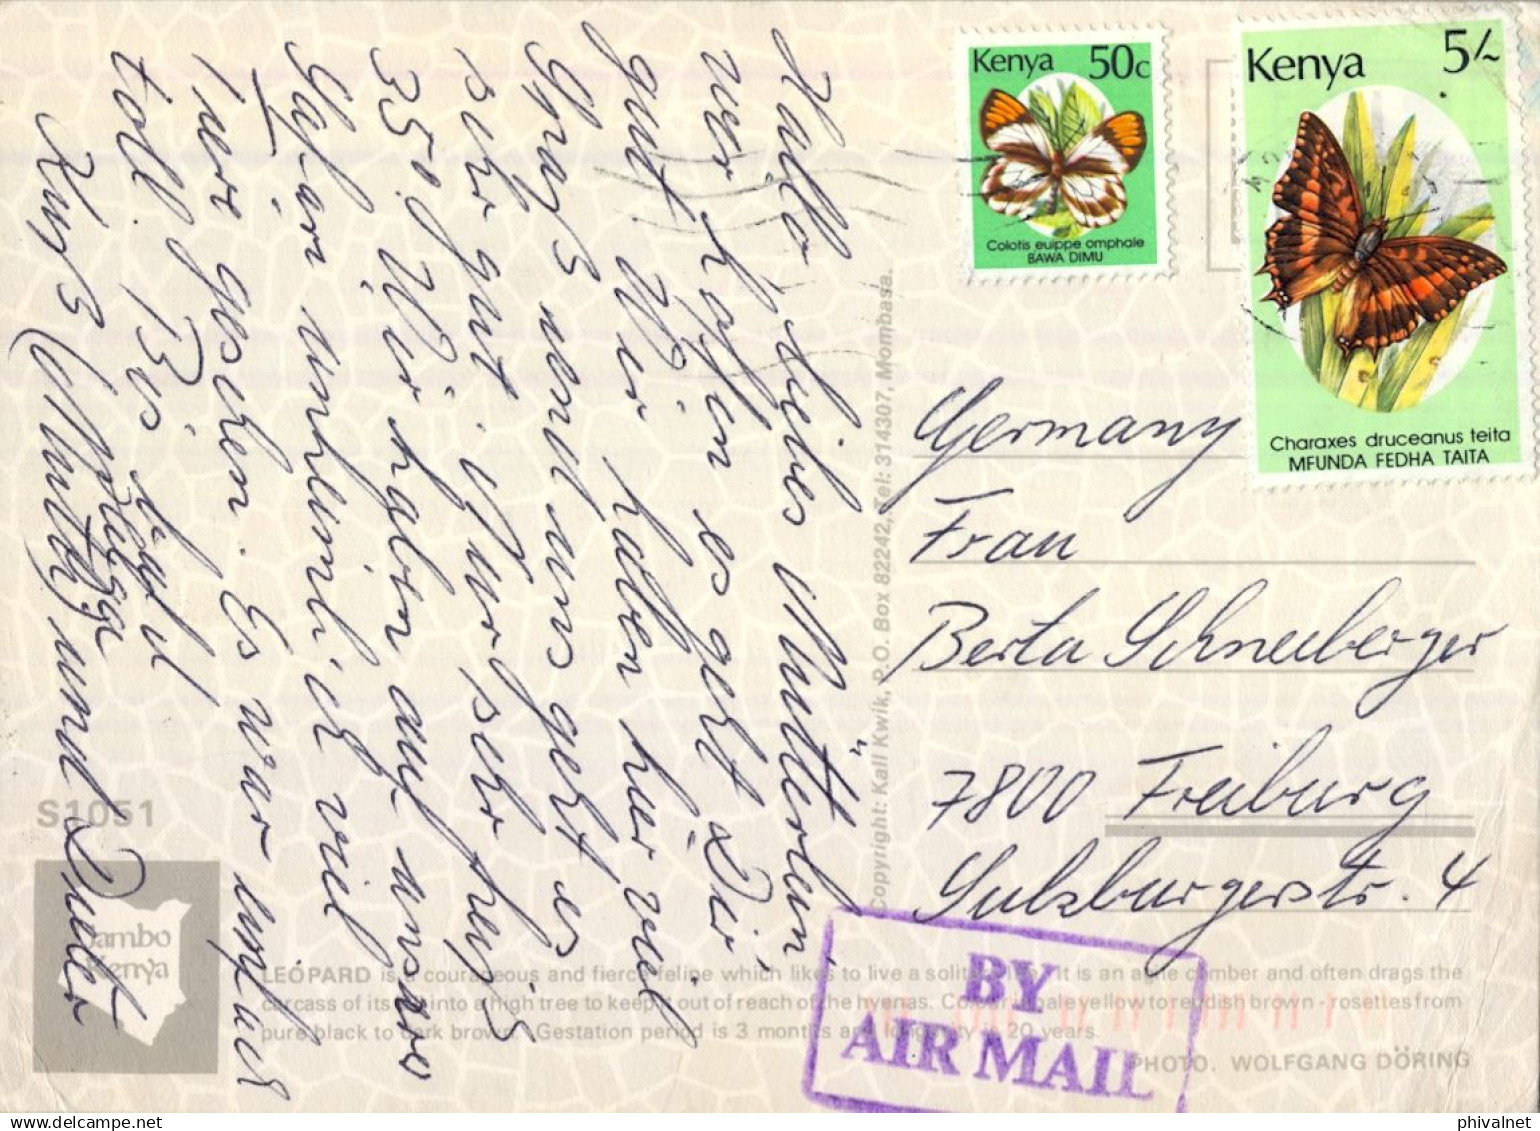 Hallo liebes Mütterlein
wir hoffen es geht Dir
gut. Wir haben hier viel
Spaß und uns geht es
sehr gut. Nur sehr heiß
35°. Wir haben auf unsrer
Safari unheimlich viel
Tiere gesehen. Es war einfach
toll. Bis bald
Kuß und Dieter
Kenya 50c
Colotis euippe omphale
BAWA DIMU
Kenya 5/-
Charaxes druceanus teita
MFUNDA FEDHA TAITA
Germany
Frau
Berta Schneeberger
7800 Freiburg
Sulzburgerstr. 4
Copyright: Kall Kwik, P.O. Box 82242, Tel: 314307, Mombasa.
S1051
Jambo
Kenya
LEOPARD is a courageous and fierce feline which likes to live a solitary life. It is an agile climber and often drags the
carcass of its kill into a high tree to keep it out of reach of the hyenas. Colour is pale yellow to reddish brown - rosettes from
pure black to dark brown. Gestation period is 3 months and longevity is 20 years.
PHOTO. WOLFGANG DÖRING
BY
AIR MAIL
phivalnet